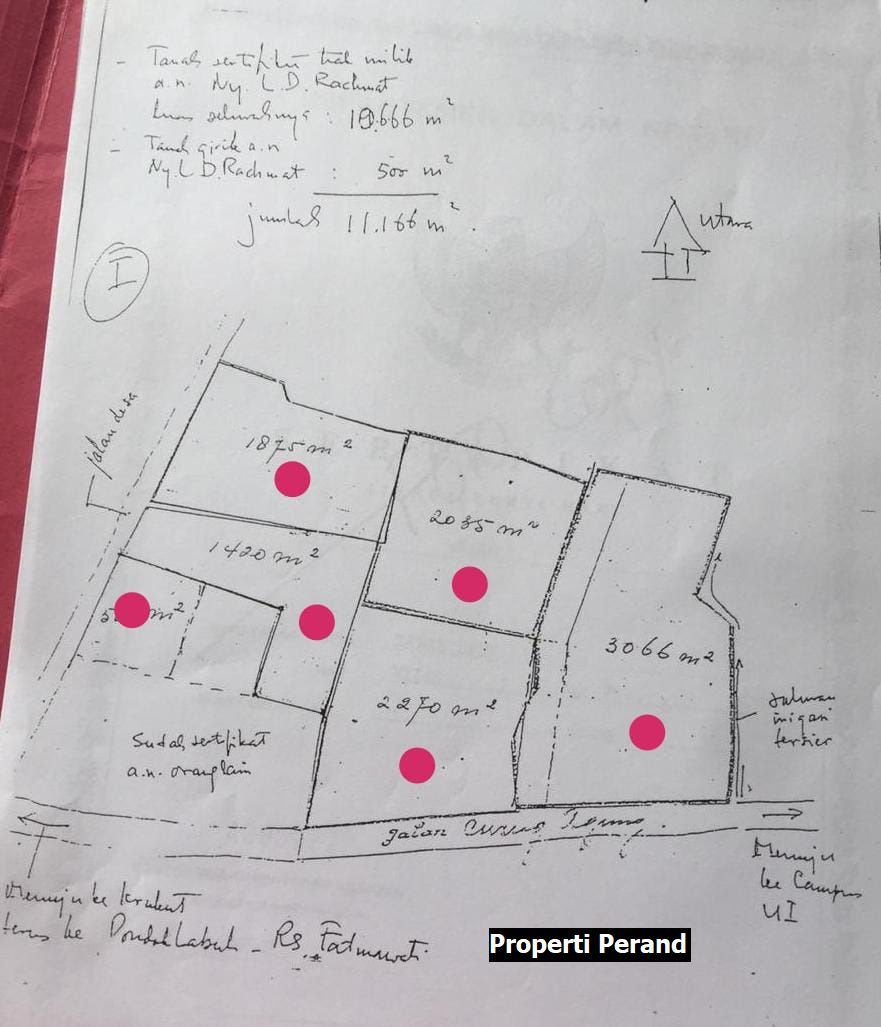 - Tanah sertifikat hak milik
a.n. Ny. L. D. Rachmat
luas seluruhnya : 10.666 m²
- Tanah girik a.n
Ny. L D. Rachmat : 500 m²
jumlah 11.166 m².
Utara
I
jalan desa
1875 m²
2035 m²
1420 m²
5 m²
3066 m²
2270 m²
saluran
irigasi
tersier
Sudah sertifikat
a.n. orang lain
jalan
Menuju ke Krukut
terus ke Pondok Labuh - RS. Fatmawati
Menuju
ke Campus
UI
Properti Perand